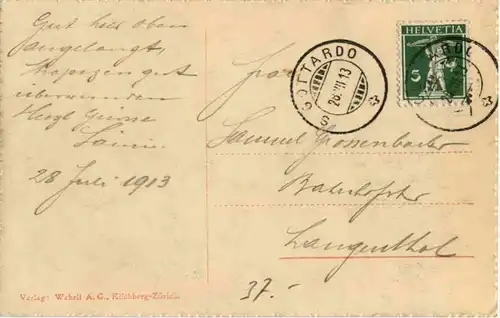 Gut hier oben
angelangt,
Strapazen gut
überwunden
Herzl. Grüsse
28 Juli 1913
HELVETIA
5
S. GOTTARDO
28.VII.13
Frau
Samuel Grossenbacher
Bahnhofstr
Langenthal
37.-
Verlag: Wehrli A. G., Kilchberg-Zürich.